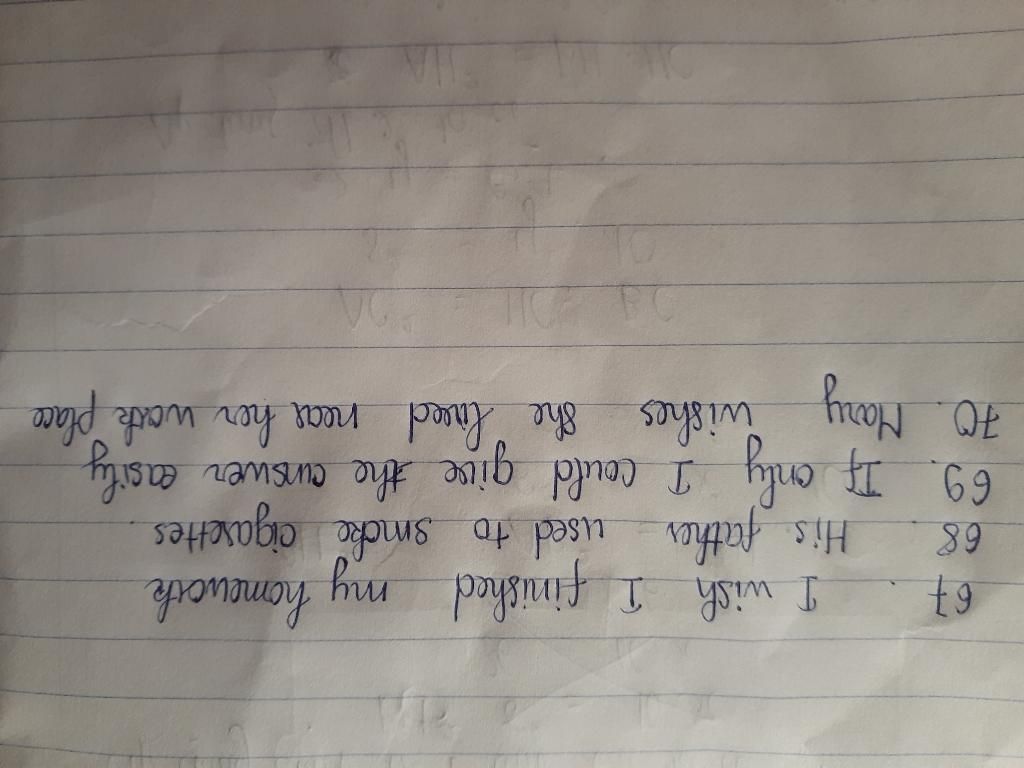 67. I wish I finished my homework
68. His father used to smoke cigarettes.
69. If only I could give the answer easily
70. Mary wishes she lived near her work place